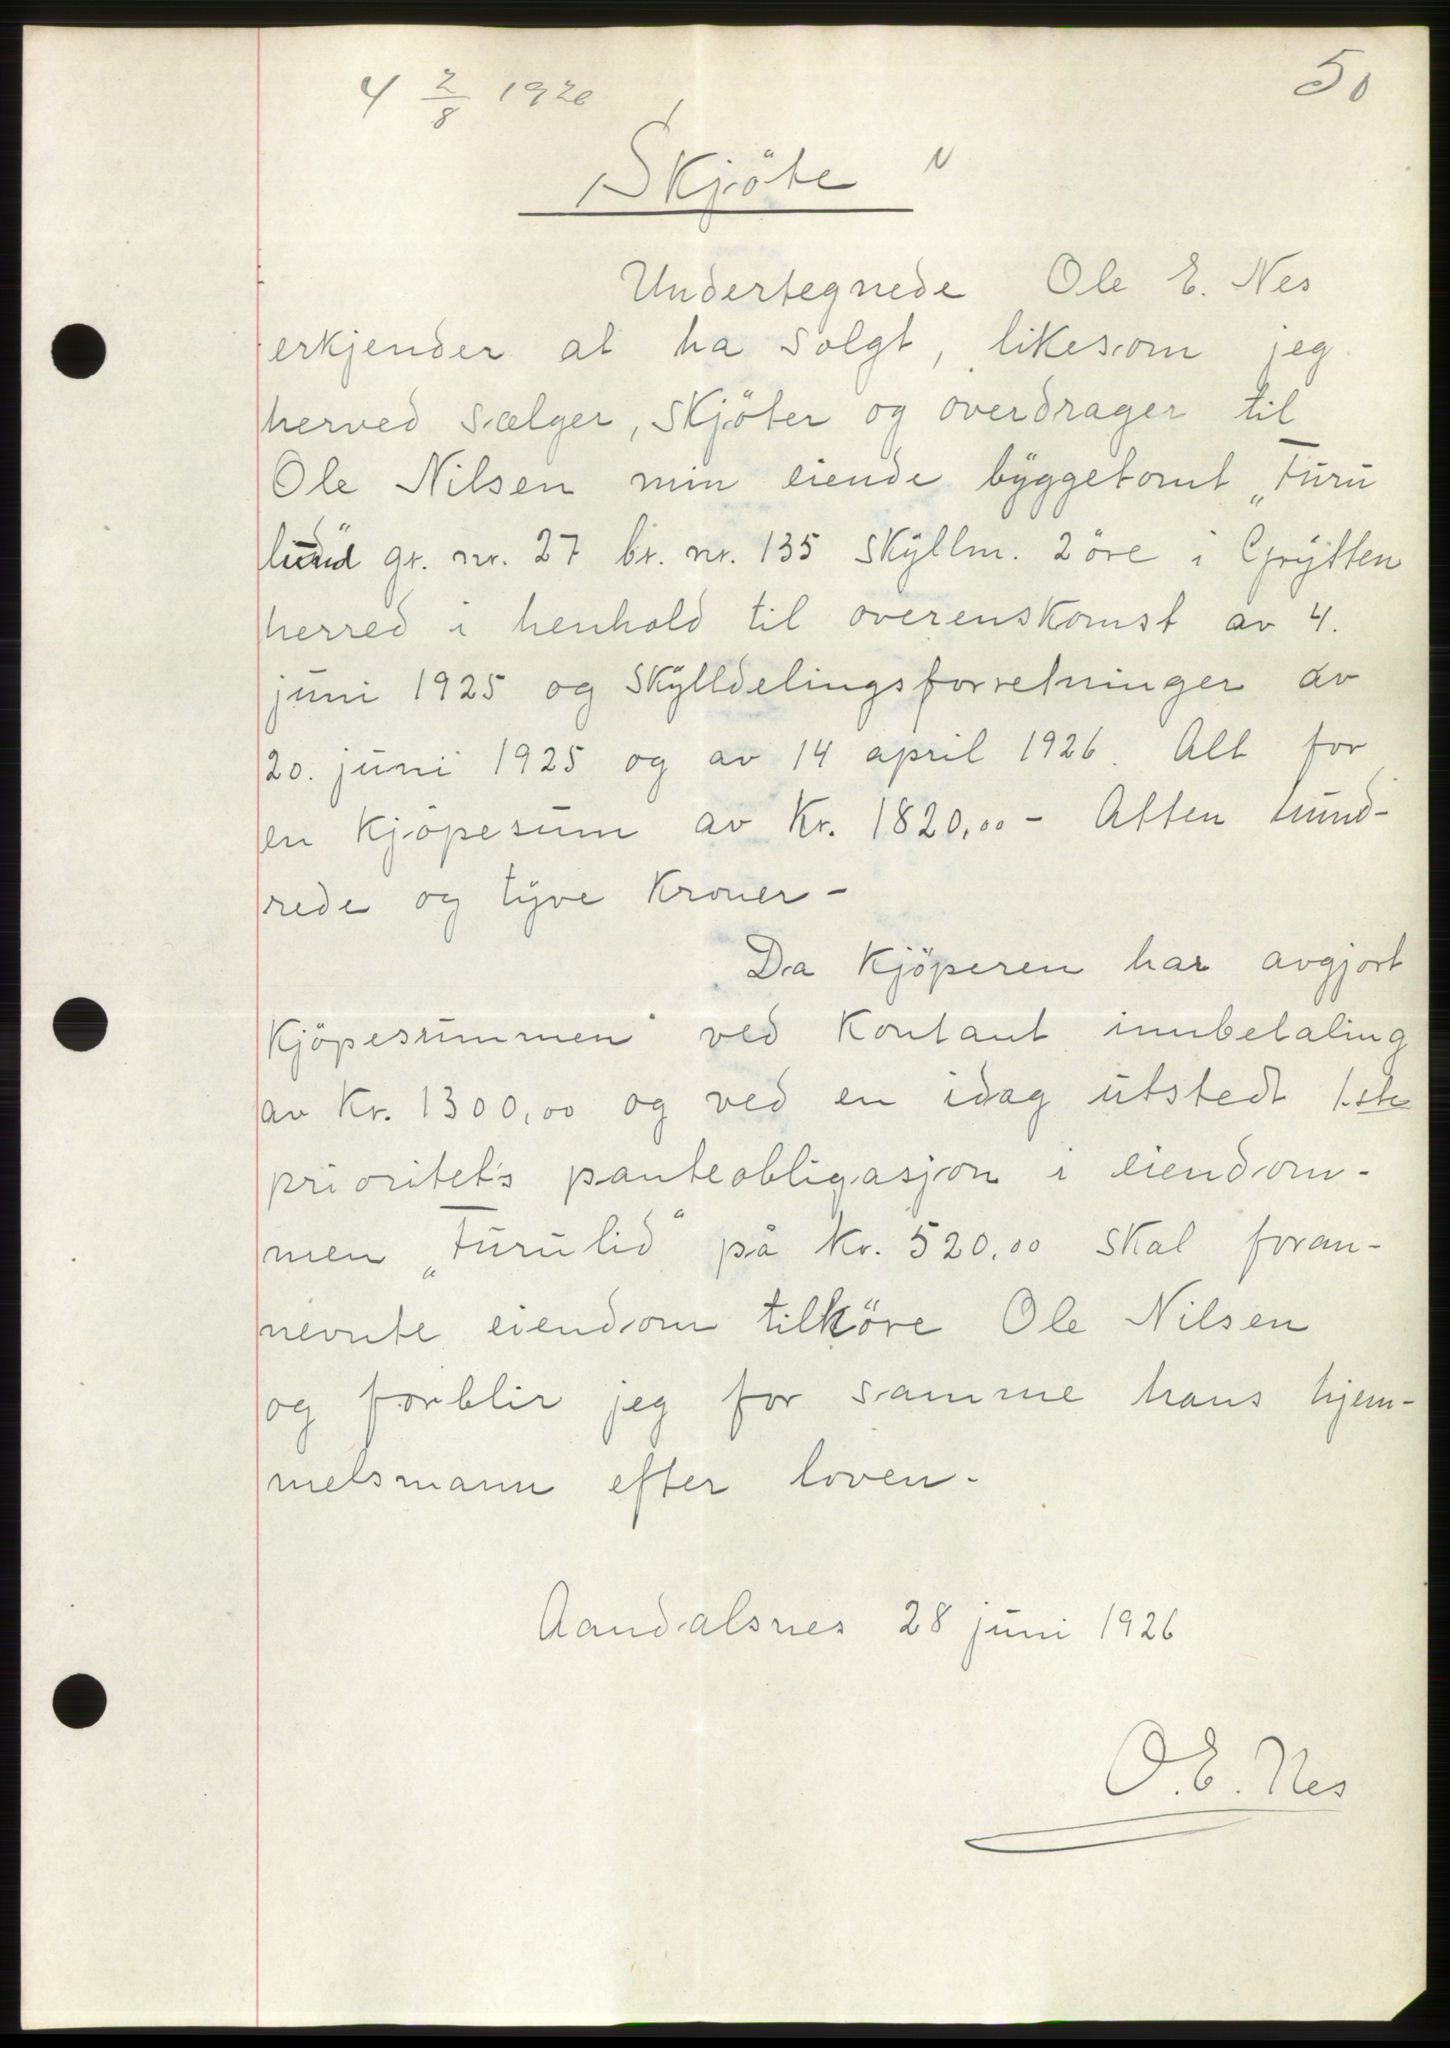 4 2/8 1926
50
Skjöte
Undertegnede Ole E. Nes
erkjender at ha solgt, likesom jeg
herved sælger, skjöter og overdrager til
Ole Nilsen min eiende byggetomt „Furu
lund" gr. nr. 27 br. nr. 135 skyllm. 2 öre i Grytten
herred i henhold til overenskomst av 4.
juni 1925 og skylldelingsforretninger av
20. juni 1925 og av 14 april 1926. Alt for
en kjöpesum av Kr. 1820,00 - Atten hund-
rede og tyve kroner -
Da kjöperen har avgjort
kjöpesummen ved kontant innbetaling
av Kr. 1300,00 og ved en idag utstedt 1.ste
prioritets panteobligasjon i eiendom-
men „Furulid" på kr. 520,00 skal foran-
nevnte eiendom tilhöre Ole Nilsen
og forblir jeg for samme hans hjem-
melsmann efter loven.
Aandalsnes 28 juni 1926
O. E. Nes